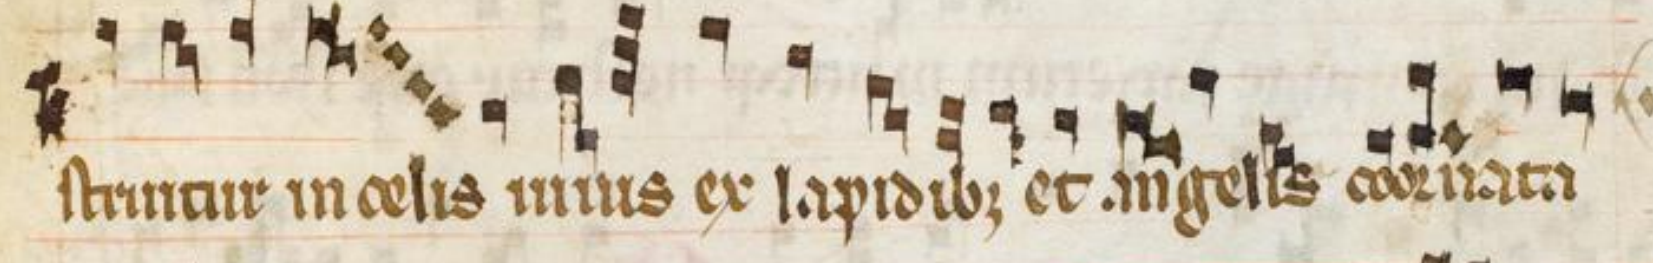 struitur in celis uiuis ex lapidibꝫ et angelis coornata